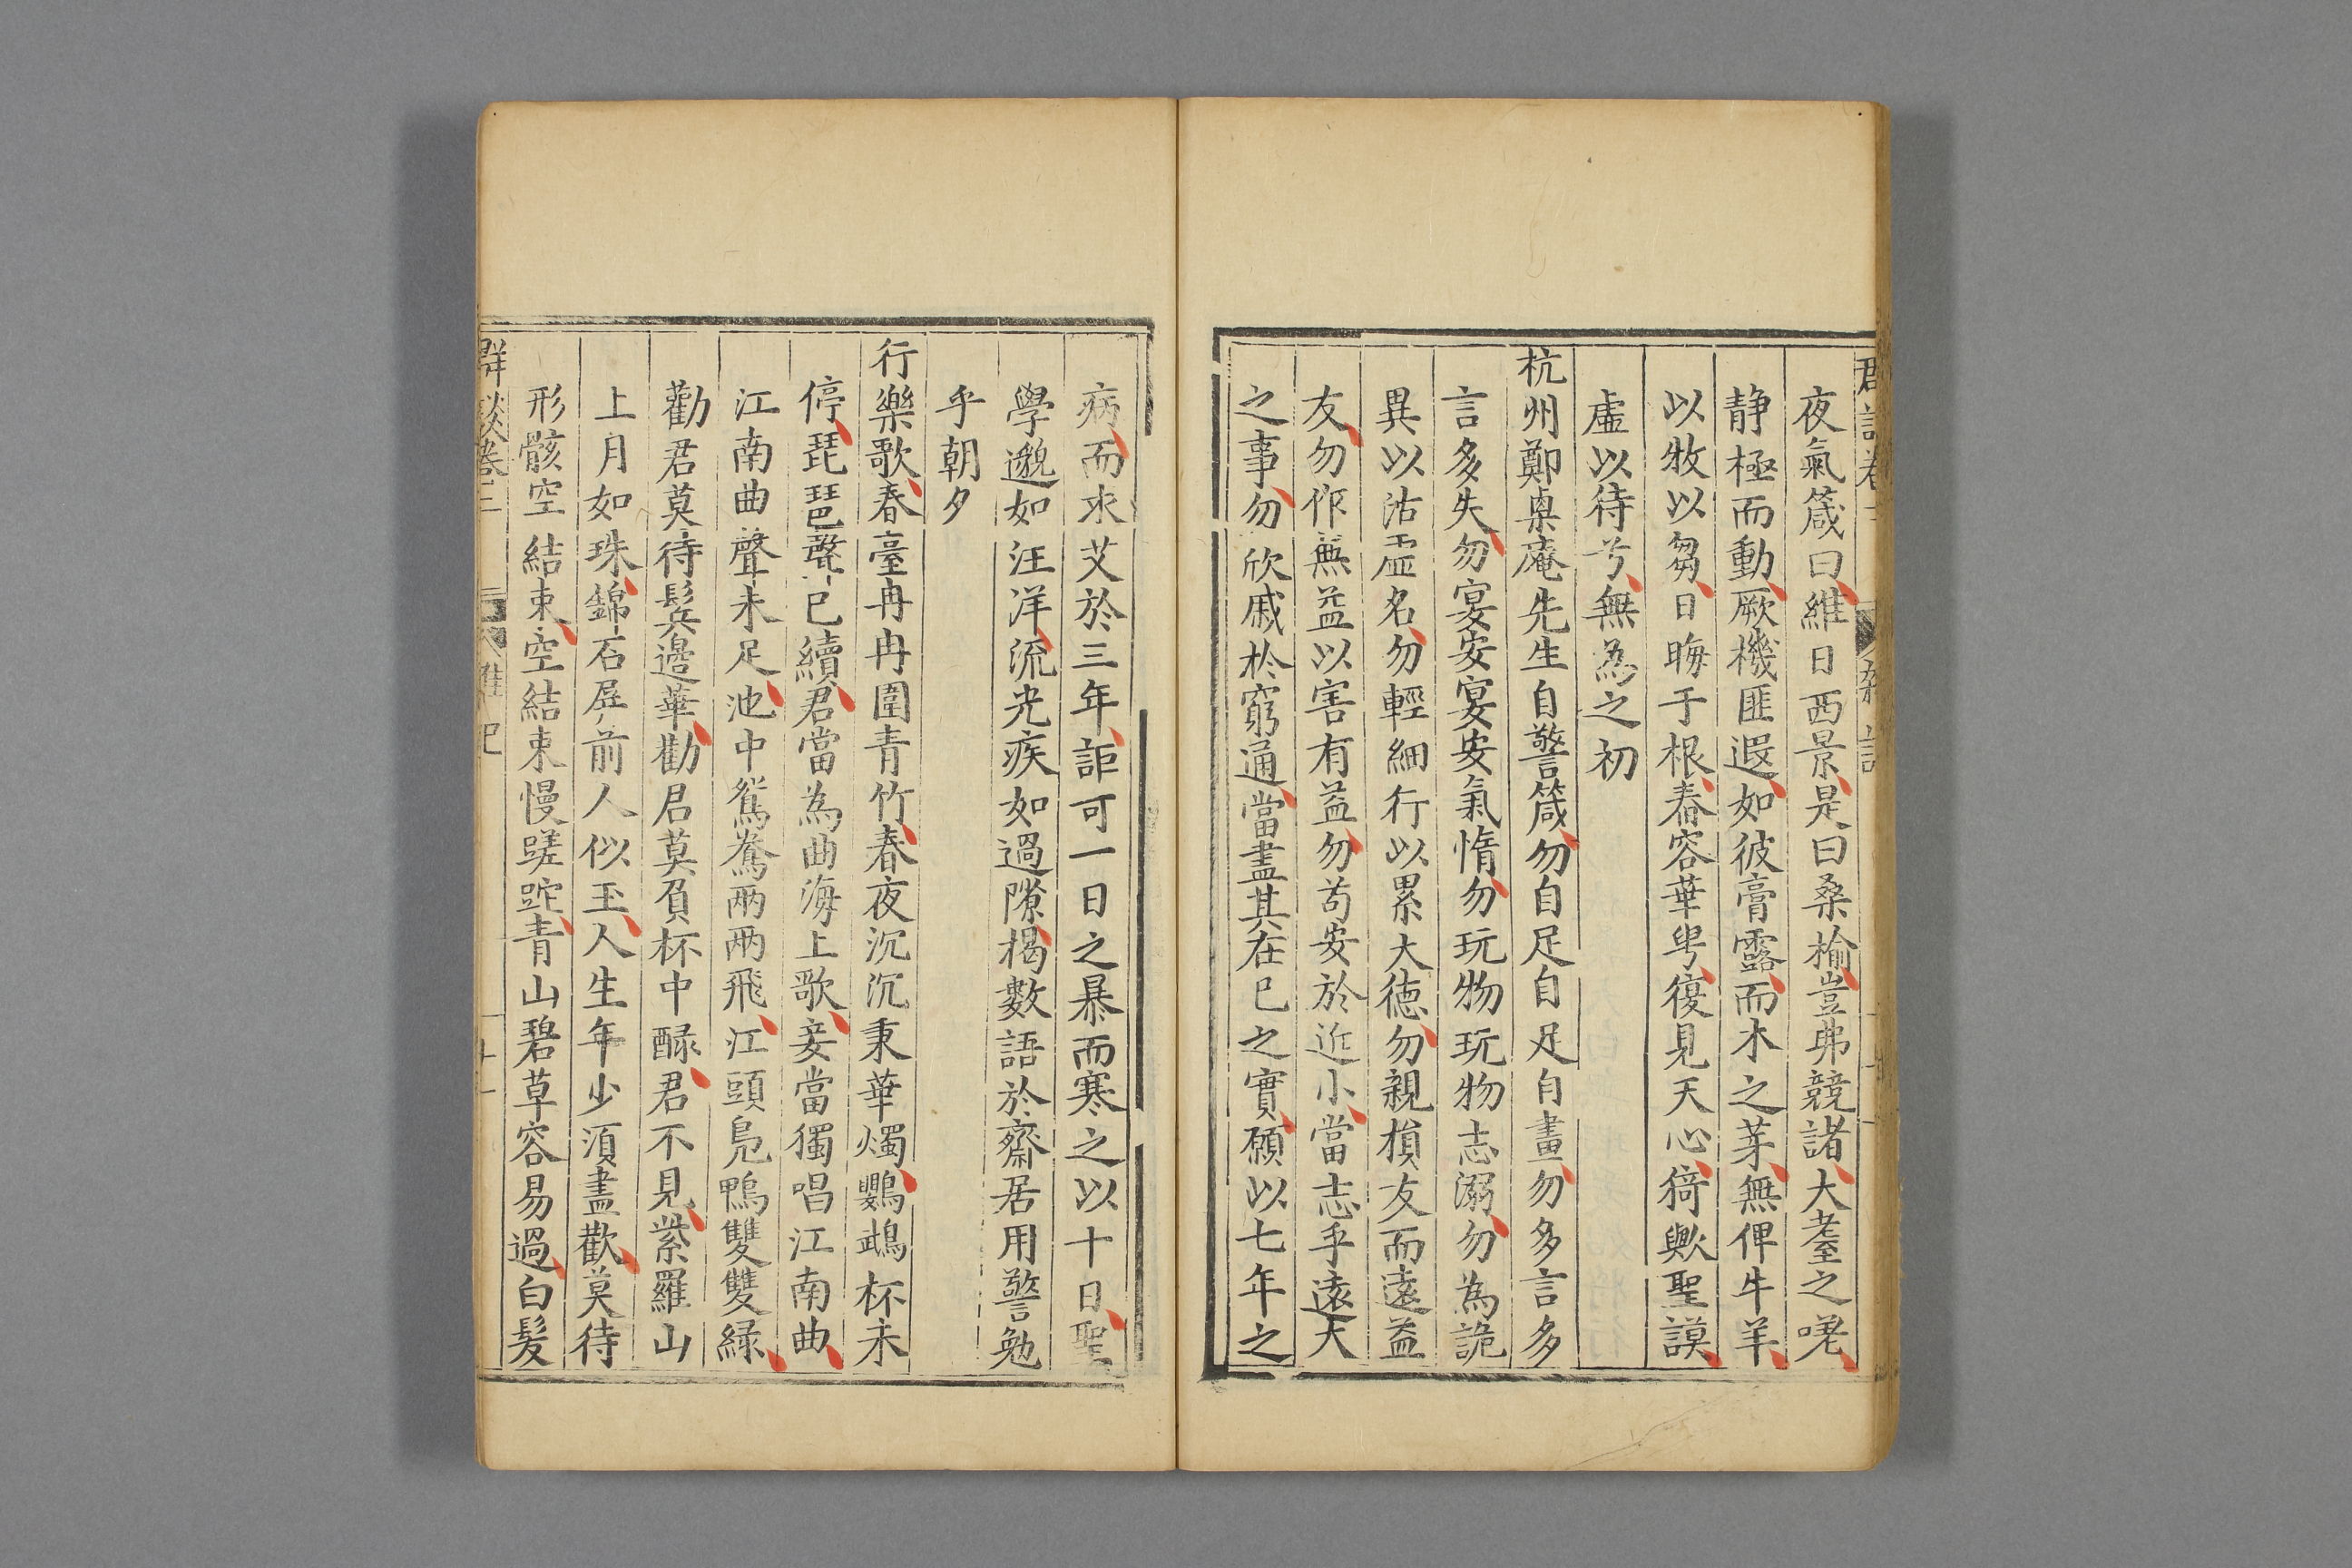 夜氣箴曰維日西景是曰桑榆豈弗競諸大耋之嗟
静極而動厥機匪遐如彼膏露而木之芽無俾牛羊
以牧以芻日晦于根春容華甹復見天心猗歟聖謨
虛以待兮無為之初
杭州鄭㮚庵先生自警箴勿自足自足自畫勿多言多
言多失勿宴安宴安氣惰勿玩物玩物志溺勿為詭
異以沽虛名勿輕細行以累大德勿親損友而遠益
友勿作無益以害有益勿苟安於近小當志乎遠大
之事勿欣戚於窮通當盡其在已之實願以七年之
病而求艾於三年詎可一日之暴而寒之以十日聖
學邈如汪洋流光疾如過隙揭數語於齋居用警勉
乎朝夕
行樂歌春臺冉冉圍青竹春夜沉沉秉華燭鸚鵡杯未
停琵琶聲已續君當為曲海上歌妾當獨唱江南曲
江南曲聲未足池中鴛鴦兩兩飛江頭鳧鴨雙雙緑
勸君莫待鬂邊華勸君莫負杯中醁君不見紫羅山
上月如珠錦石屏前人似玉人生年少須盡歡莫待
形骸空結束空結束慢蹉跎青山碧草容易過白髮
群談卷三 雜記 十一